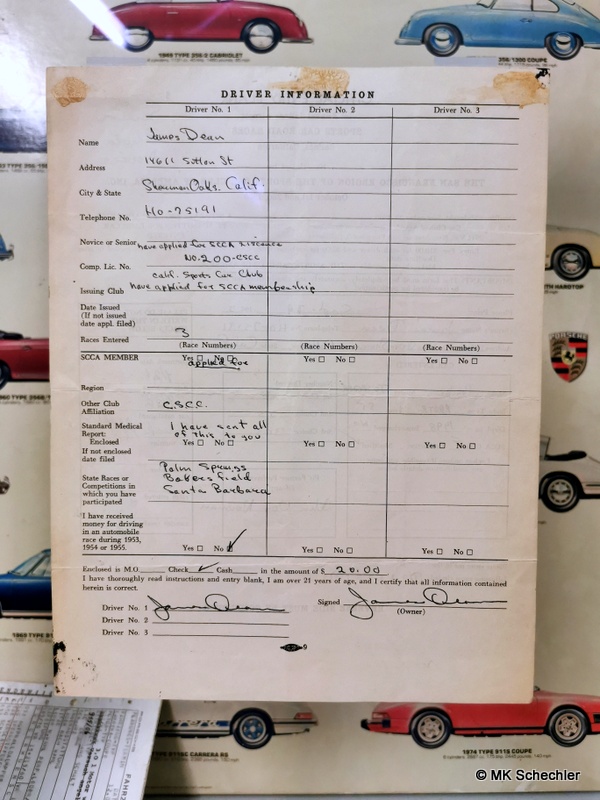 1953 TYPE 356/2 CABRIOLET
356/1300 COUPE
DRIVER INFORMATION
Driver No. 1 Driver No. 2 Driver No. 3
Name James Dean
Address 14611 Sutton St
City & State Sherman Oaks. Calif.
Telephone No. HO-75191
Novice or Senior have applied for SCCA
Comp. Lic. No. NO. 200-CSCC
Calif. Sports Car Club
Issuing Club have applied for SCCA membership
Date Issued
(If not issued
date appl. filed)
Races Entered 3
(Race Numbers) (Race Numbers) (Race Numbers)
SCCA MEMBER Yes □ No □ Yes □ No □ Yes □ No □
applied for
Region
Other Club
Affiliation C.S.C.C.
Standard Medical I have sent all
Report: of this to you
Enclosed Yes □ No □ Yes □ No □ Yes □ No □
If not enclosed
date filed
State Races or Palm Springs
Competitions in Bakersfield
which you have Santa Barbara
participated
I have received
money for driving
in an automobile
race during 1953,
1954 or 1955. Yes □ No ✓ Yes □ No □ Yes □ No □
Enclosed is M.O. Check ✓ Cash in the amount of $ 20.00
I have thoroughly read instructions and entry blank, I am over 21 years of age, and I certify that all information contained
herein is correct.
Driver No. 1 James Dean Signed James Dean
Driver No. 2 (Owner)
Driver No. 3
9
HARDTOP
PORSCHE
Carrera
CARRERA RS
1974 TYPE 911S COUPE
© MK Schechler